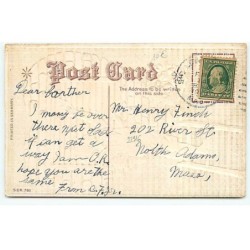 Post Card
Dear Brother
I may be over
there next Sat
if I can get a
way I am O.K.
hope you are the
same
From C. F. Jr.
The Address to be written
on this side
Mr. Henry Finch
202 River St
North Adams,
Mass.